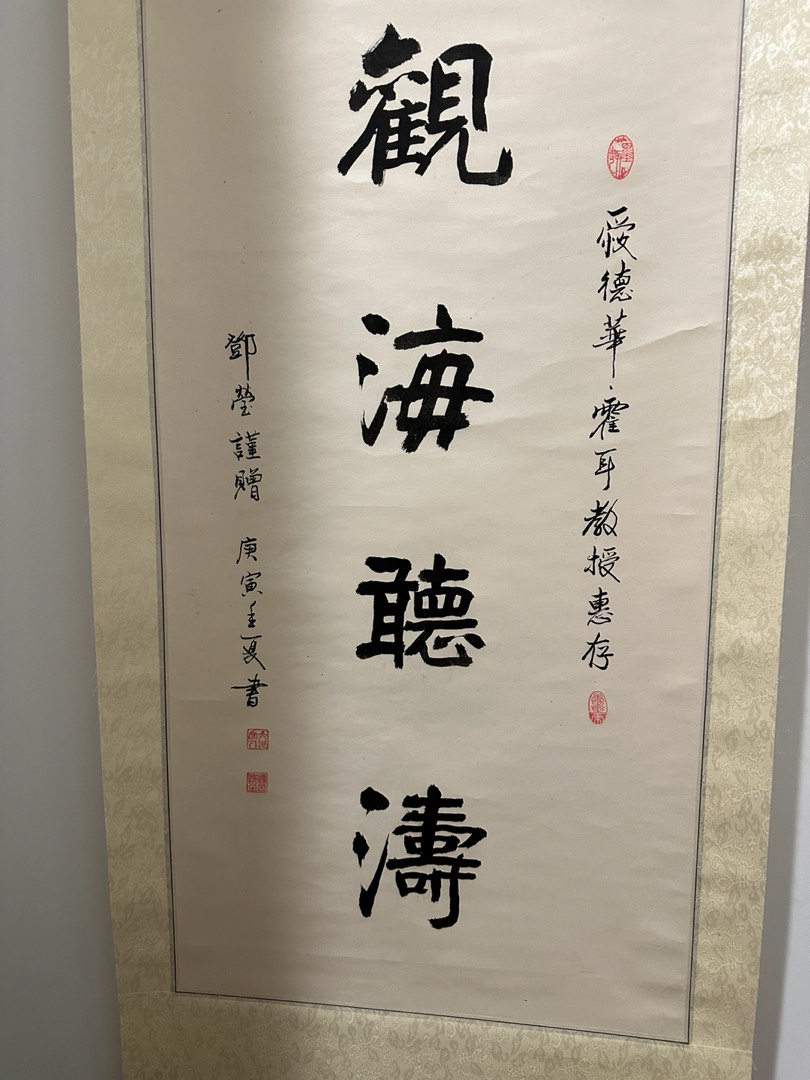 愛德華、霍耳教授惠存
觀海聽濤
鄧瑩謹贈 庚寅年夏書